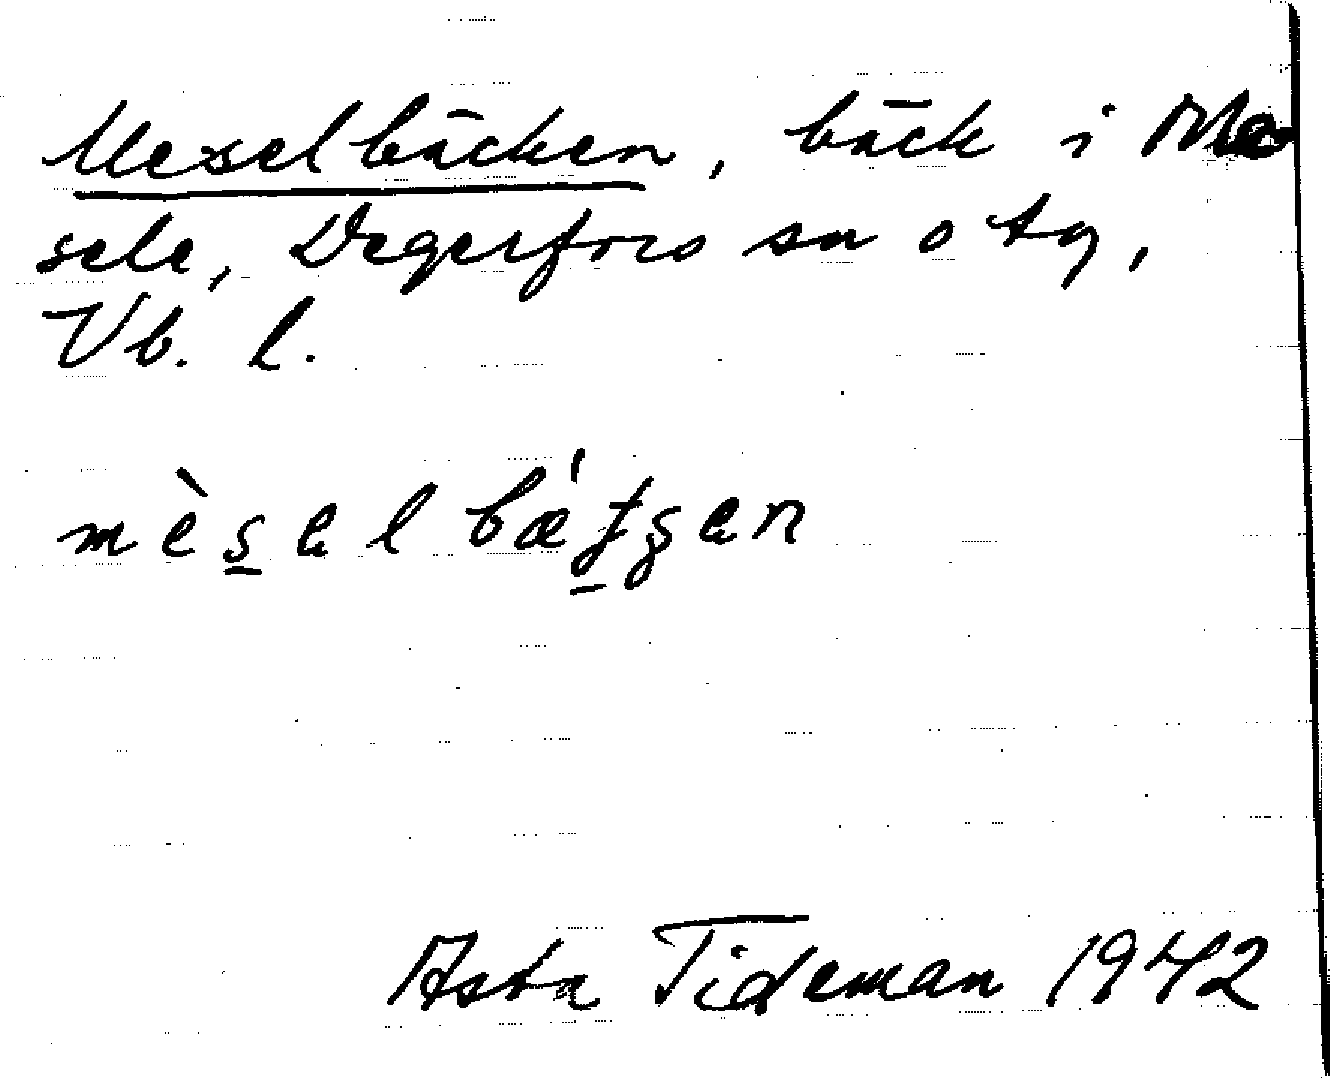 Meselbäcken, bäck i Me
sele, Degerfors sn o tg,
Vb. l.
Asta Tideman 1942